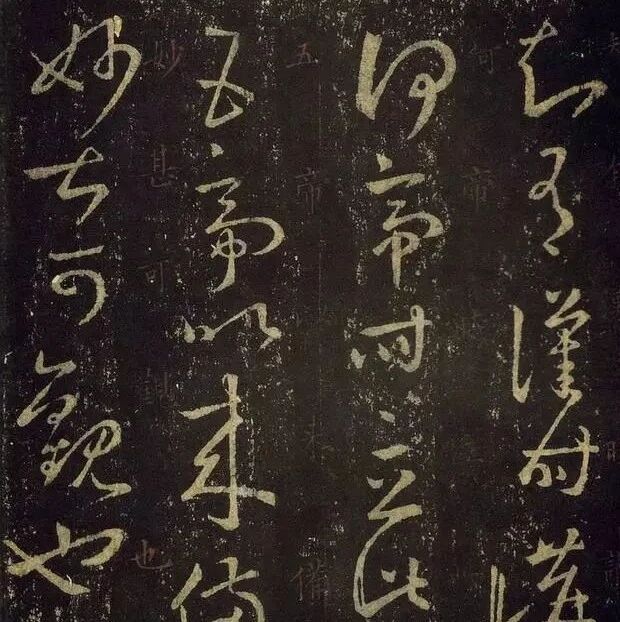 知有漢時講
何帝時立此
五帝以來備
妙甚可觀也